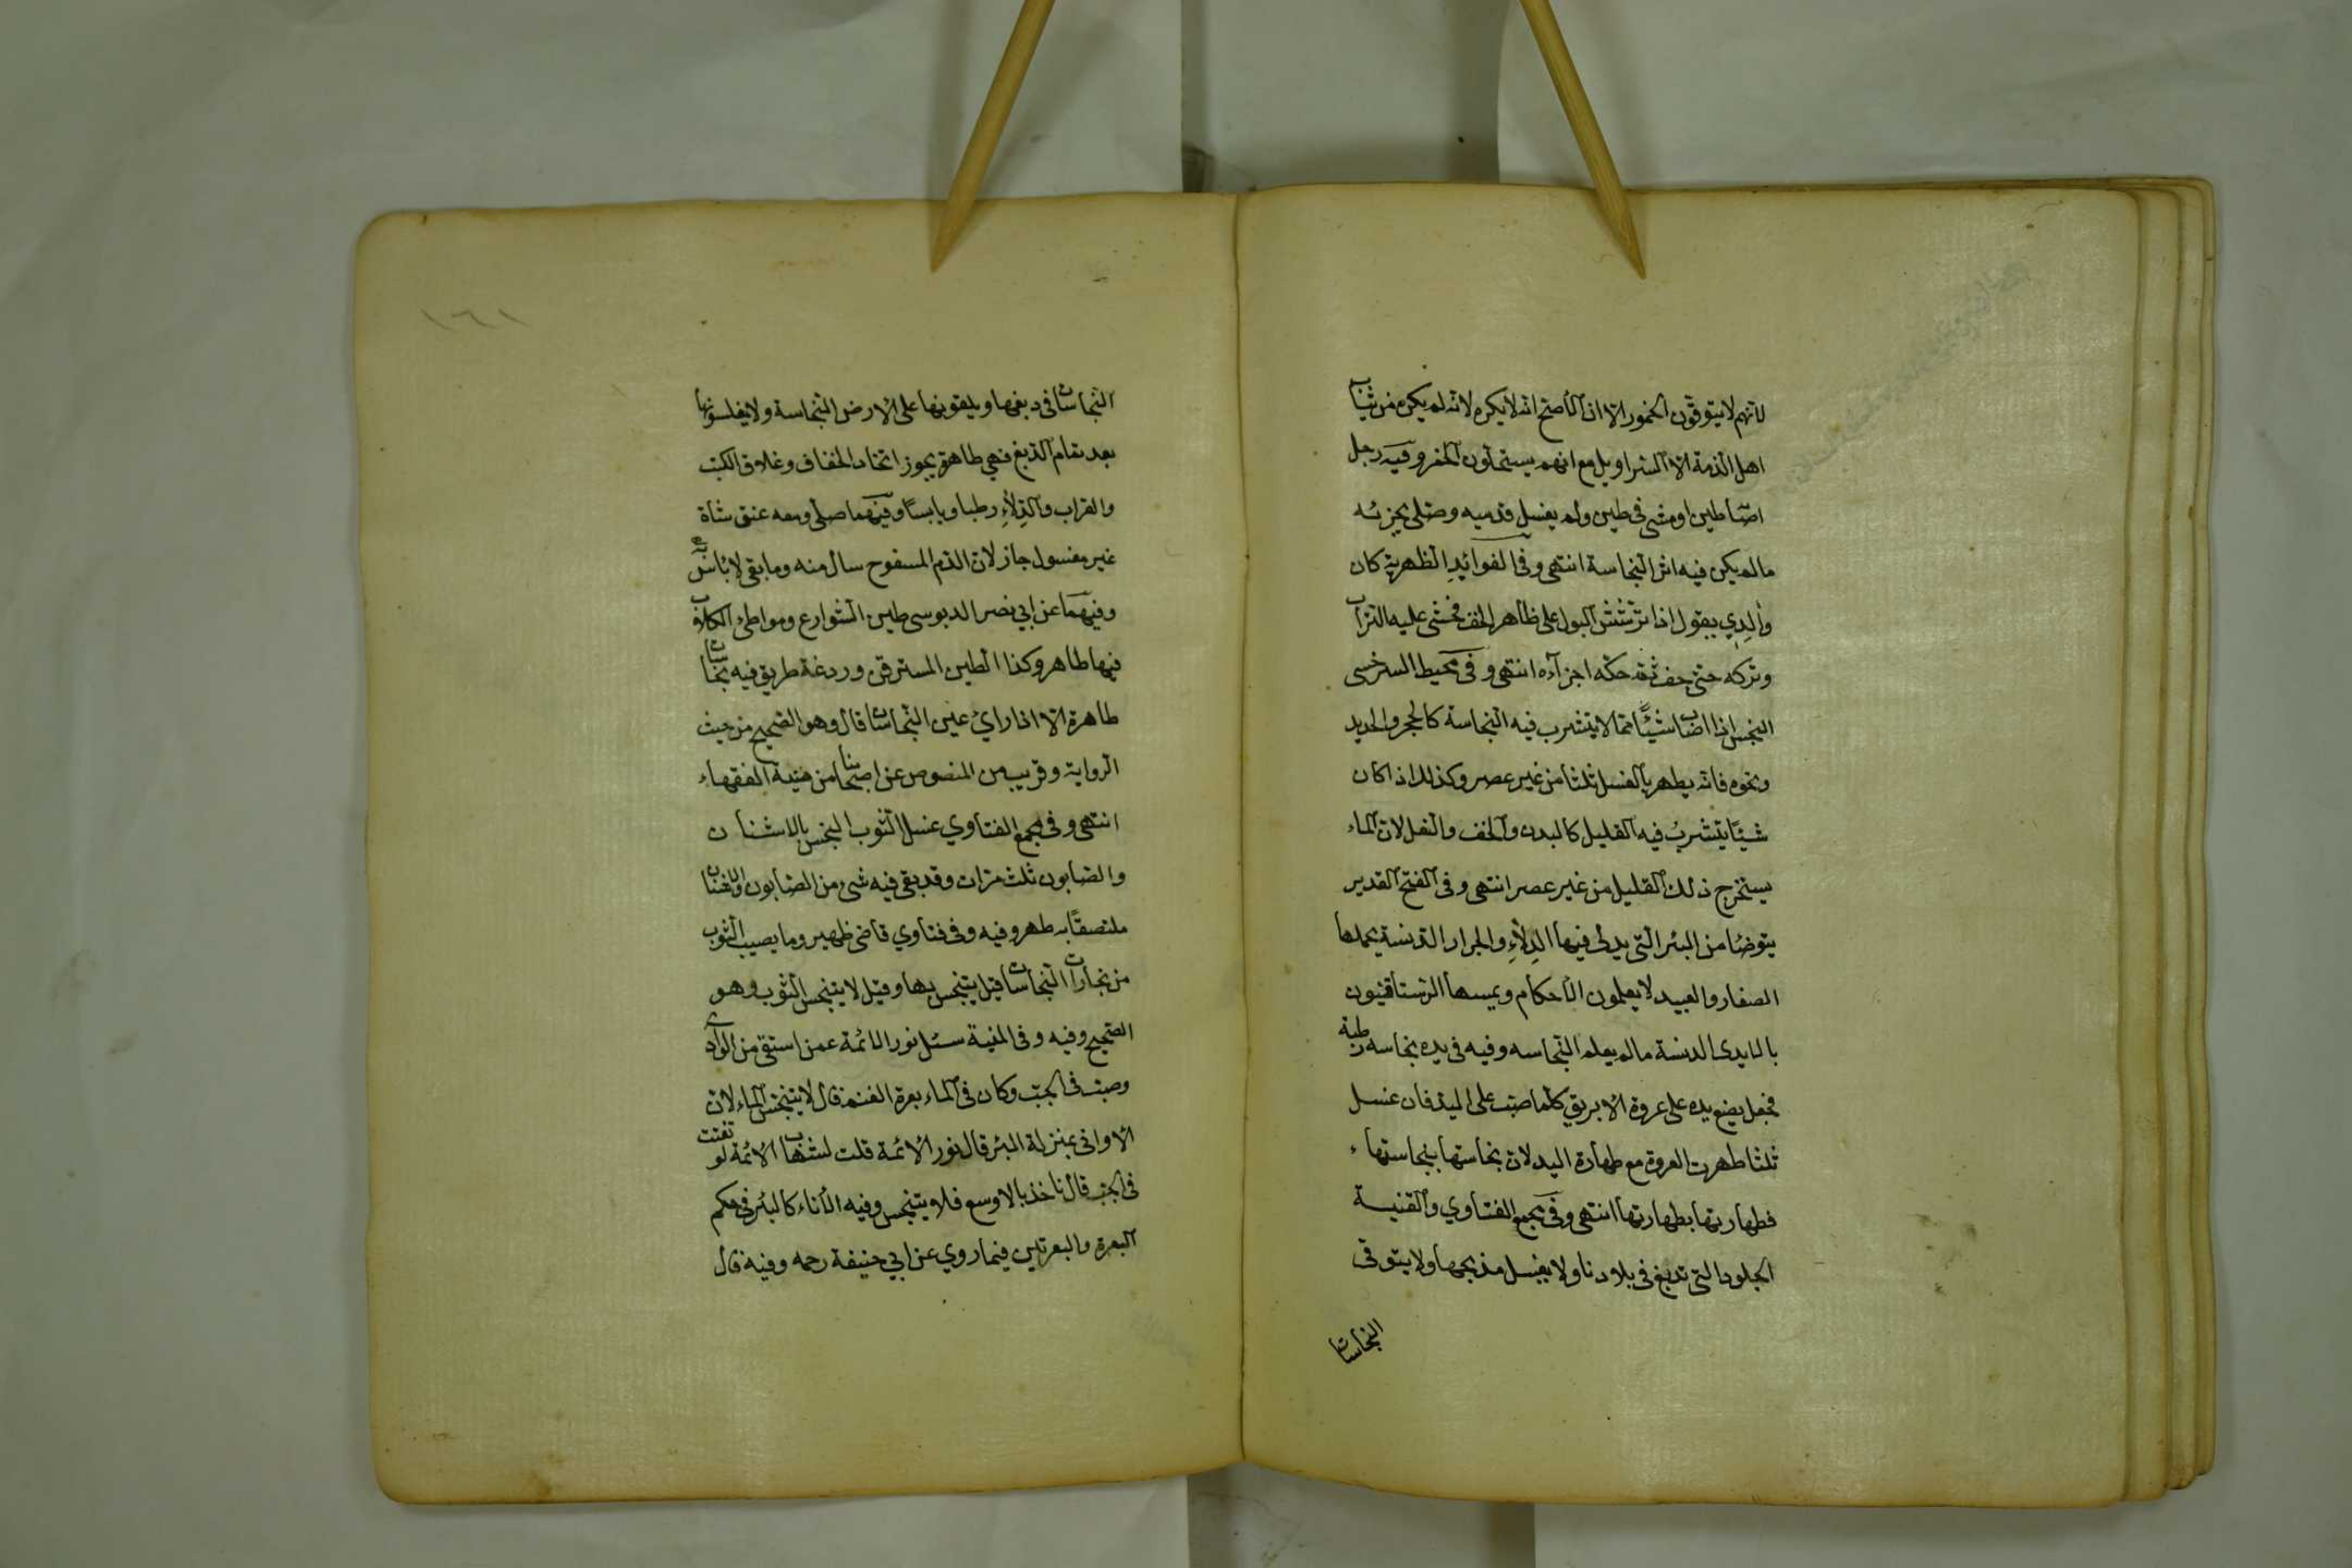 لانهم لا يتوقون الخمور الا ان الأصح انه لا يكره لانه لم يكره من ثياب
اهل الذمة الا السراويل مع انهم يستحلون الخمر وفيه رجل
اصاب طين او مشى في طين ولم يغسل قدميه وصلى يجزئه
ما لم يكن فيه اثر النجاسة انتهى وفي الفوائد الظهرية كان
والدي يقول اذا ترشش البول على ظاهر الخف فحشى عليه التراب
وتركه حتى جف ثم حكه اجزاه انتهى وفي محيط السرخسى
النجس اذا اصاب شيئا مما لا يتشرب فيه النجاسة كالحجر والحديد
ونحوه فانه يطهر بالغسل ثلثا من غير عصر وكذلك اذا كان
شيئا يتشرب فيه القليل كالبدن والخف والنعل لان الماء
يستخرج ذلك القليل من غير عصر انتهى وفي الفتح القدير
يتوضأ من البئر التي يدلى فيها الدلاء والجرار الدنسة يحملها
الصغار والعبيد لا يعلمون الأحكام ويمسها الرستاقيون
بالايدى الدنسة ما لم يعلم النجاسه وفيه في يده نجاسه رطبة
فجعل يضع يده على عروة الابريق كلما صب على اليد فان غسل
ثلثا طهرت العروة مع طهارة اليد لان نجاستها بنجاستها
فطهارتها بطهارتها انتهى وفي مجمع الفتاوي والقنية
الجلود التي تدبغ في بلادنا ولا يغسل مذبحها ولا يتوقى
النجاسات
١٦١
النجاسات في دبغها ويلقونها على الارض النجاسة ولا يغلسونها
بعد تمام الدبغ فهي طاهرة يجوز اتخاد الخفاف وغلاف الكتب
والقراب والدلاء رطبا ويابسا وفيهما صلى ومعه عنق شاة
غير مغسول جاز لان الدم المسفوح سال منه وما بقى لا بأس به
وفيهما عن ابي نصر الدبوسى طين الشوارع ومواطئ الكلاب
فيها طاهر وكذا الطين المسترقن وردغة طريق فيه نجاسات
طاهرة الا اذا راي عين النجاسات قال وهو الصحيح من حيث
الرواية وقريب من المنصوص عن اصحابنا من منية الفقهاء
انتهى وفي مجمع الفتاوي غسل الثوب النجس بالاشنان
والصابون ثلث مرات وقد بقى فيه شئ من الصابون والاشنان
ملتصقا به طهر وفيه وفي فتاوي قاضى ظهير وما يصيب الثوب
من بخارات النجاسات قيل يتنجس بها وقيل لا يتنجس الثوب وهو
الصحيح وفيه وفي المنية سئل نور الائمة عمن استقى من الوادي
وصب في الجب وكان في الماء بعرة الغنم قال لا يتنجس الماء لان
الاوانى بمنزلة البئر قال نور الائمة قلت لشهاب الائمة لو تفتت
في الجب قال ناخذ بالاوسع فلا يتنجس وفيه الأناء كالبئر في حكم
البعرة والبعرتين فيما روي عن ابي حنيفة رحمه وفيه قال